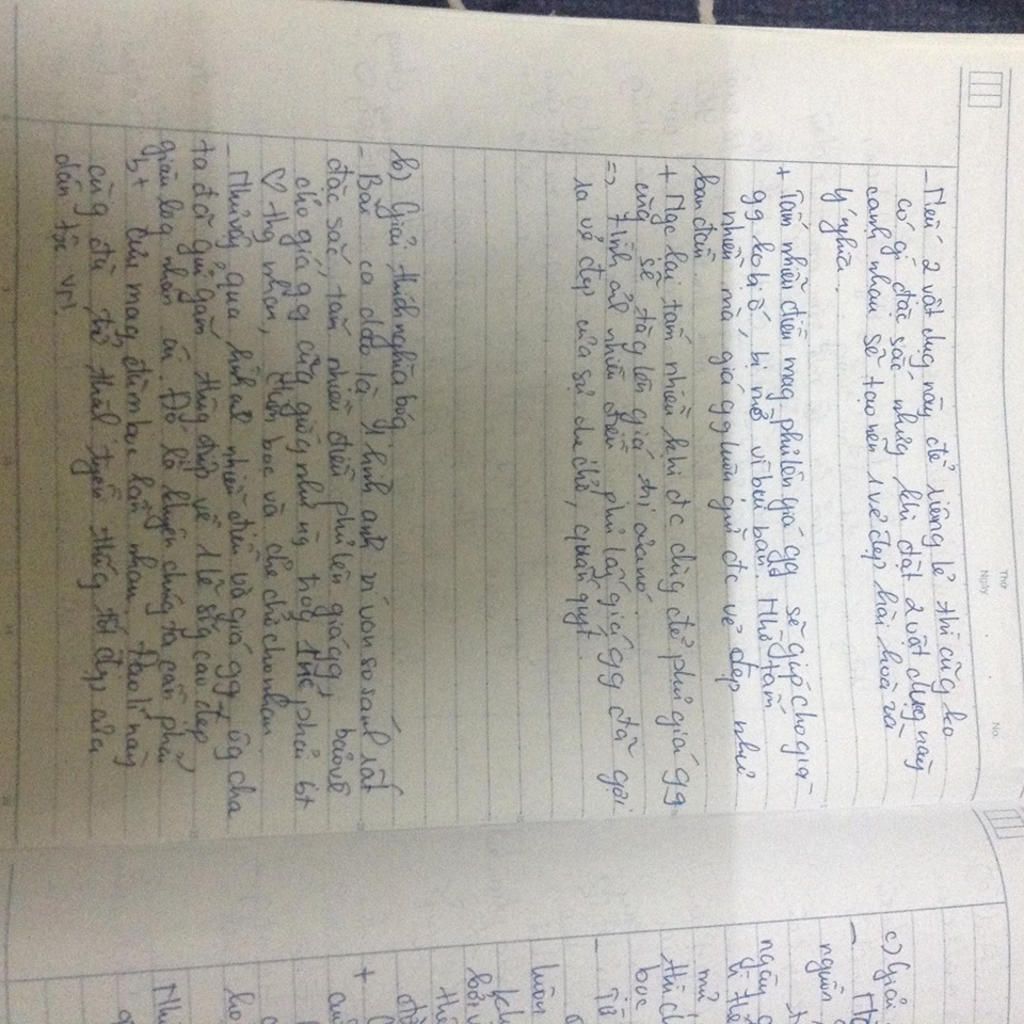 Thứ
Ngày
No.
- Nếu 2 vật dụng này để riêng lẻ thì cũg ko
có gì đặc sắc nhưg khi đặt 2 vật dụng này
cạnh nhau sẽ tạo nên 1 vẻ đẹp hài hoà và
ý nghĩa.
+ Tấm nhiễu điều mag phủ lên giá gg sẽ giúp cho giá
gg ko bị ố, bị mờ vì bụi bẩn. Nhờ tấm
nhiễu mà giá gg luôn giữ đc vẻ đẹp như
ban đầu.
+ Ngc lại tấm nhiễu khi đc dùg để phủ giá gg
cũg sẽ tăg lên giá trị của nó.
=> Hình ảh nhiễu điều phủ lấy giá gg đã gợi
ra vẻ đẹp của sự che chở, quấn quýt.
b) Giải thích nghĩa bóg
- Bài ca dao là 1 hình ảnh ví von so sánh rất
đặc sắc, tấm nhiễu điều phủ lên giá gg, bảo vệ
cho giá gg cũg giốg như ng trog 1 nc phải bt
♡ thg nhau, đùm bọc và che chở cho nhau.
- Nhưng qua hình ảh nhiễu điều và giá gg, ôg cha
ta đã gửi gắm thôg điệp về 1 lẽ sốg cao đẹp
giàu lòg nhân ái. Đó là khuyên chúg ta cần phải
bt cưu mag, đùm bọc lẫn nhau. Đạo lí này
cũg đã trở thành truyền thốg tốt đẹp của
dân tộc VN.
c) Giải